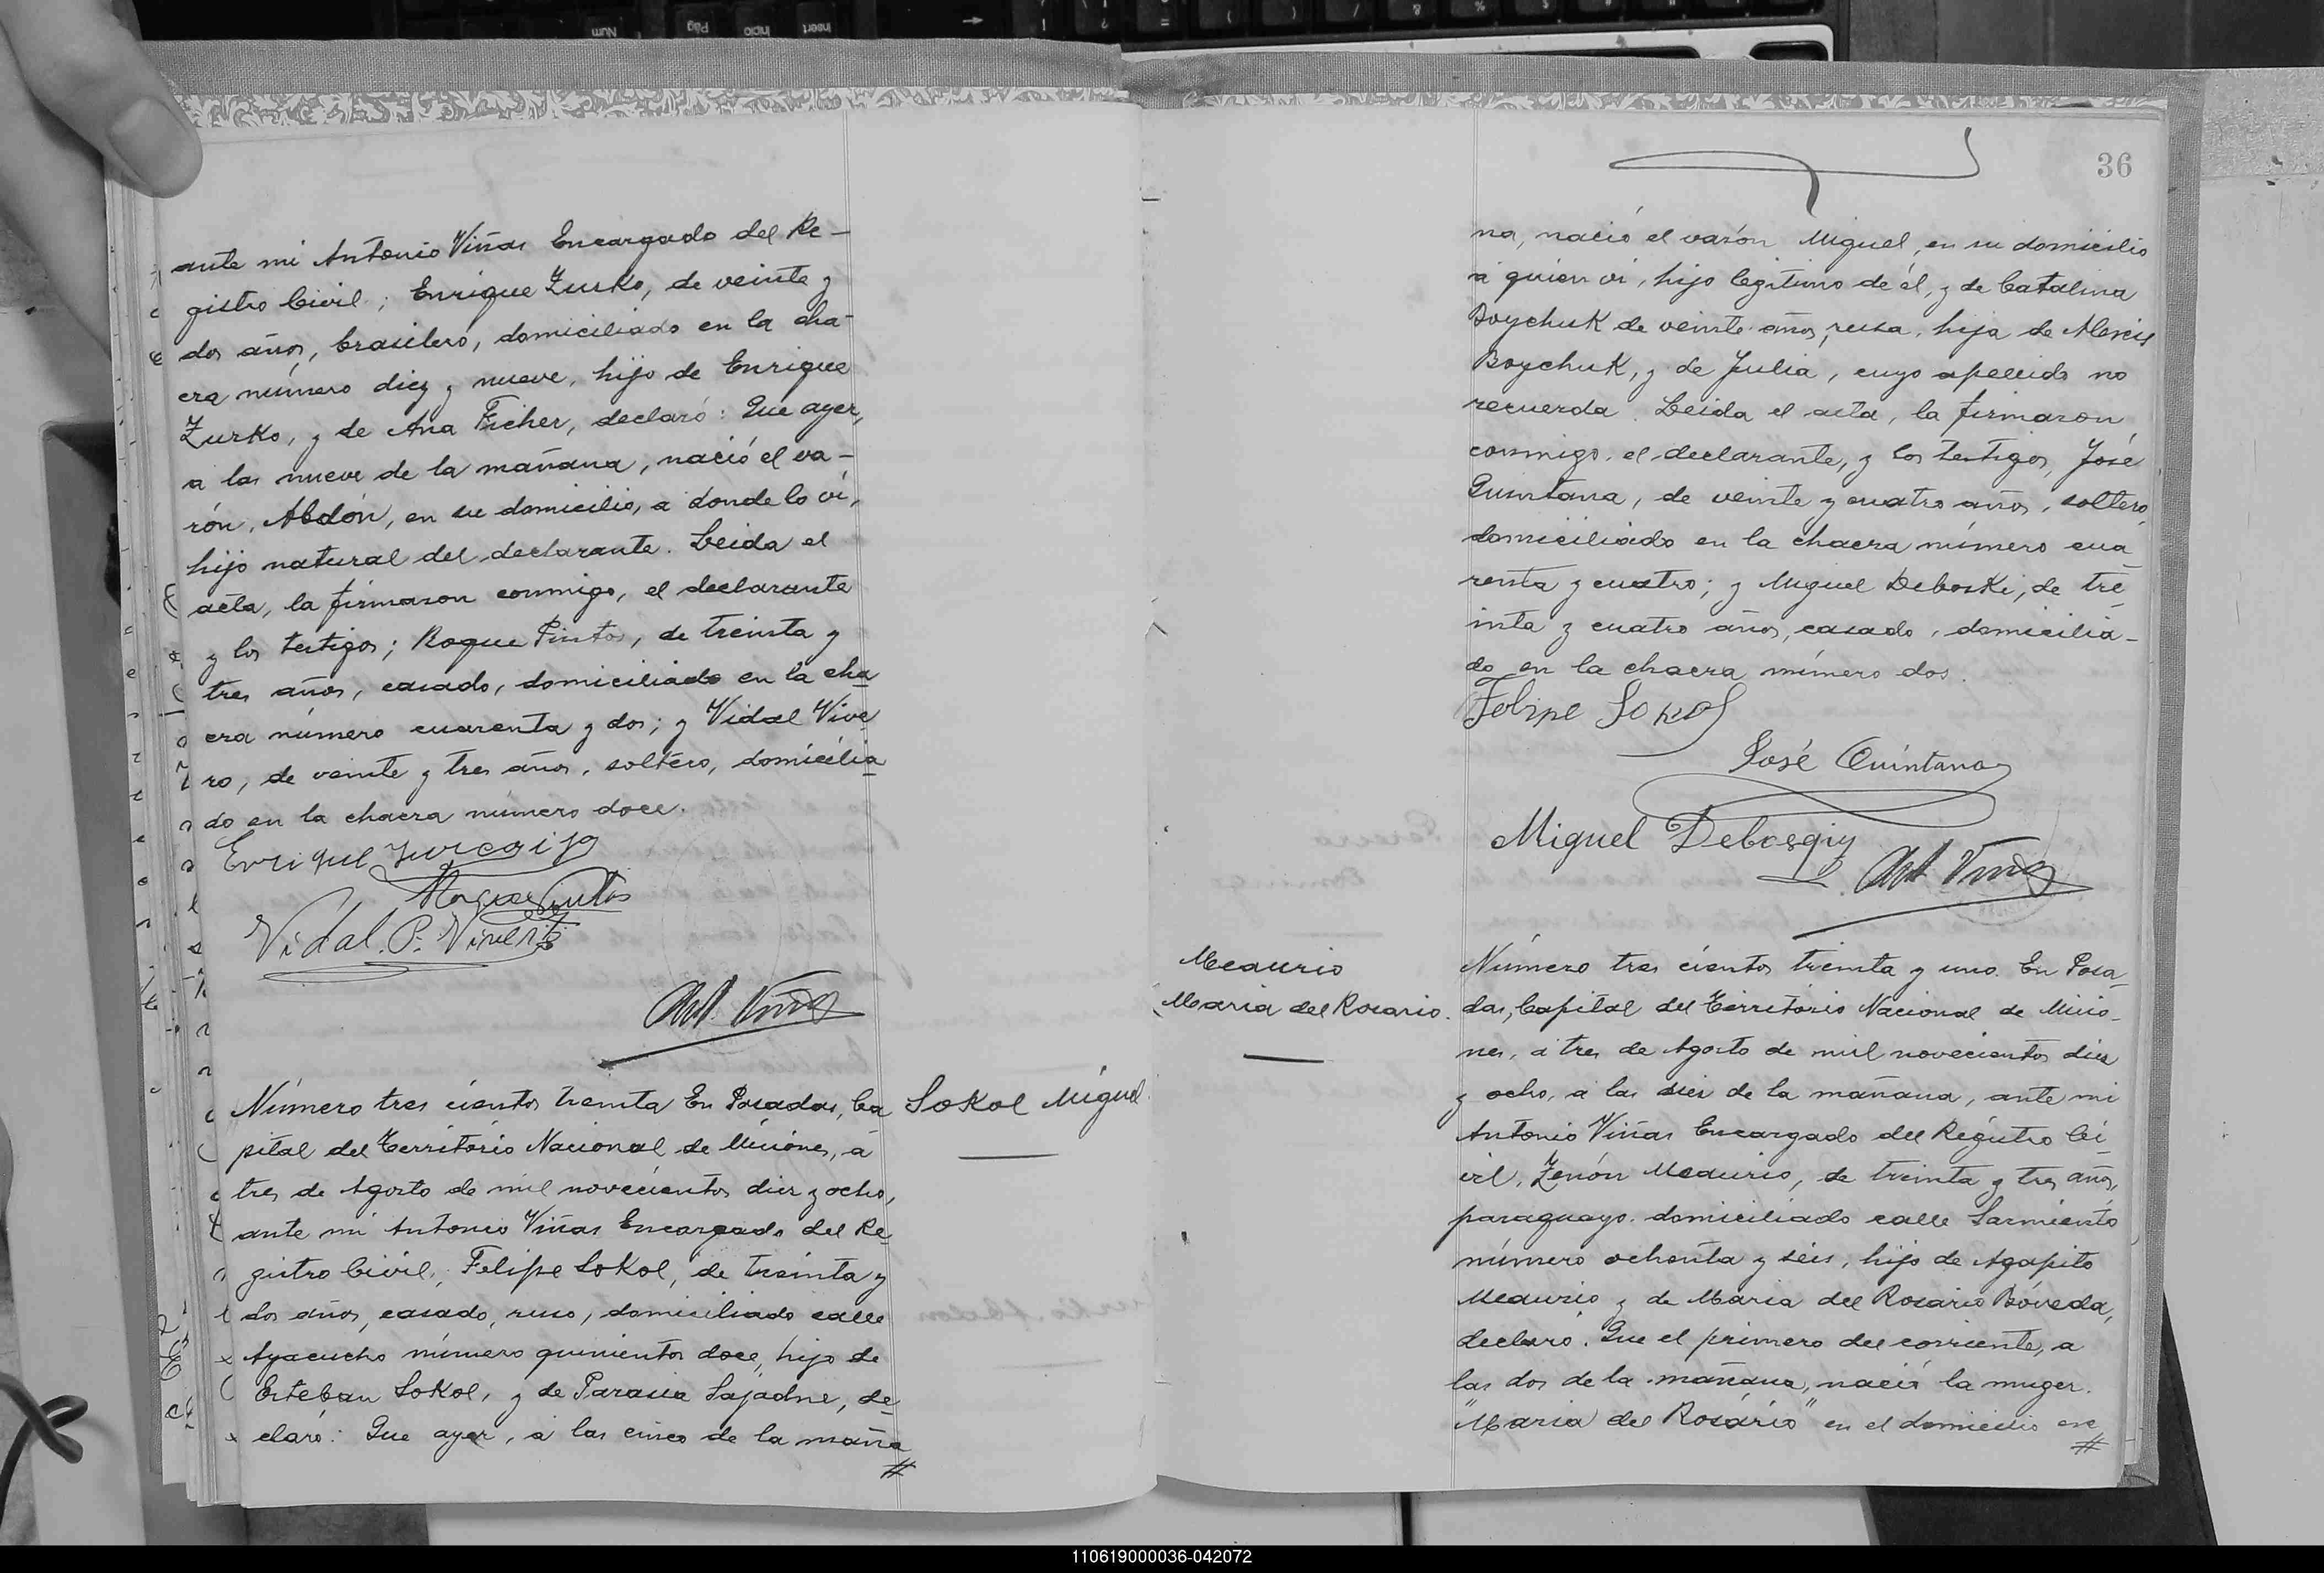 ante mi Antonio Viñas Encargado del Re-
gistro Civil; Enrique Zurko, de veinte y
dos años, brasilero, domiciliado en la cha-
cra número diez y nueve, hijo de Enrique
Zurko, y de Ana Ficher, declaró: Que ayer,
a las nueve de la mañana, nació el va-
rón, Abdón, en su domicilio, a donde lo vi,
hijo natural del declarante. Leida el
acta, la firmaron conmigo, el declarante
y los testigos; Roque Pintos, de treinta y
tres años, casado, domiciliado en la cha
cra número cuarenta y dos; y Vidal Vive
ro, de veinte y tres años, soltero, domicilia
do en la chacra número doce.
Enrique
Roque Pintos
Vidal. P. Vivero
Ant Viñas
Número tres cientos treinta En Posadas, Ca
Sokol Miguel.
pital del Territorio Nacional de Misiones, á
tres de Agosto de mil novecientos diez y ocho,
ante mi Antonio Viñas Encargado del Re
gistro Civil, Felipe Sokol, de treinta y
dos años, casado, ruso, domiciliado calle
Ayacucho número quinientos doce, hijo de
Esteban Sokol, y de Parasia Sajadne, de
claró: Que ayer, a las cinco de la maña
#
36
na, nació el varón Miguel, en su domicilio
a quien vi, hijo legítimo de él, y de Catalina
Boychuk de veinte años, rusa, hija de Alexis
Boychuk, y de Julia, cuyo apellido no
recuerda. Leida el acta, la firmaron
conmigo, el declarante, y los testigos, José
Quintana, de veinte y cuatro años, soltero,
domiciliado en la chacra número cua
renta y cuatro; y Miguel Deboski, de tre
inta y cuatro años, casado, domicilia-
do en la chacra número dos.
Felipe Sokol
José Quintana
Miguel Debosqiy
Ant Viñas
Meaurio
Maria del Rosario.
Número tres cientos treinta y uno. En Posa
das, Capital del Territorio Nacional de Misio-
nes, á tres de Agosto de mil novecientos diez
y ocho, a las diez de la mañana, ante mi
Antonio Viñas Encargado del Registro Ci
vil, Zenón Meaurio, de treinta y tres años,
paraguayo, domiciliado calle Sarmiento
número ochenta y séis, hijo de Agapito
Meaurio y de Maria del Rosario Bóveda,
declaró: Que el primero del corriente, a
las dos de la mañana, nació la muger.
"Maria del Rosário" en el domicilio ex
#
110619000036-042072